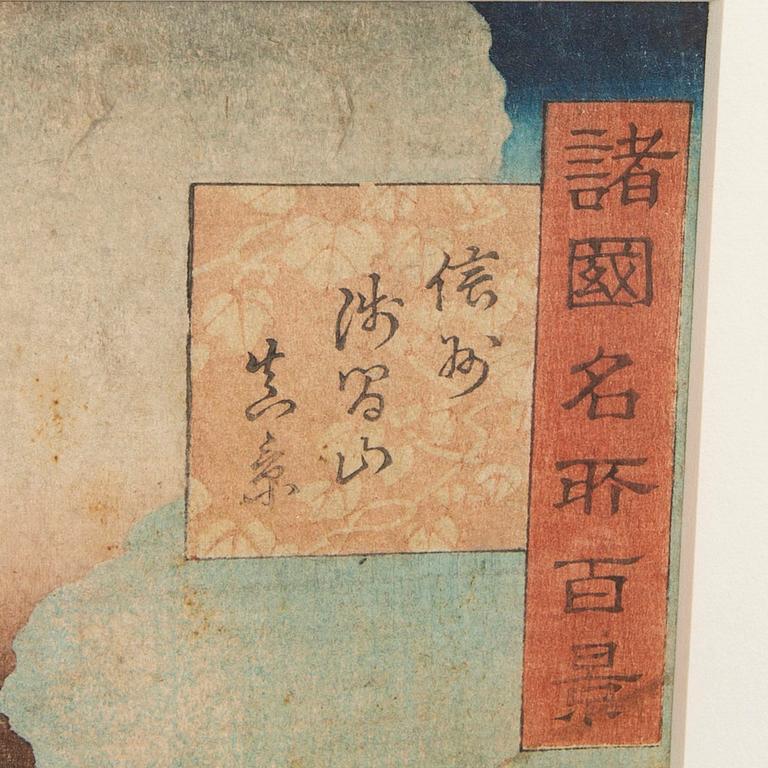 諸國名所百景
信州
浅間山
真景